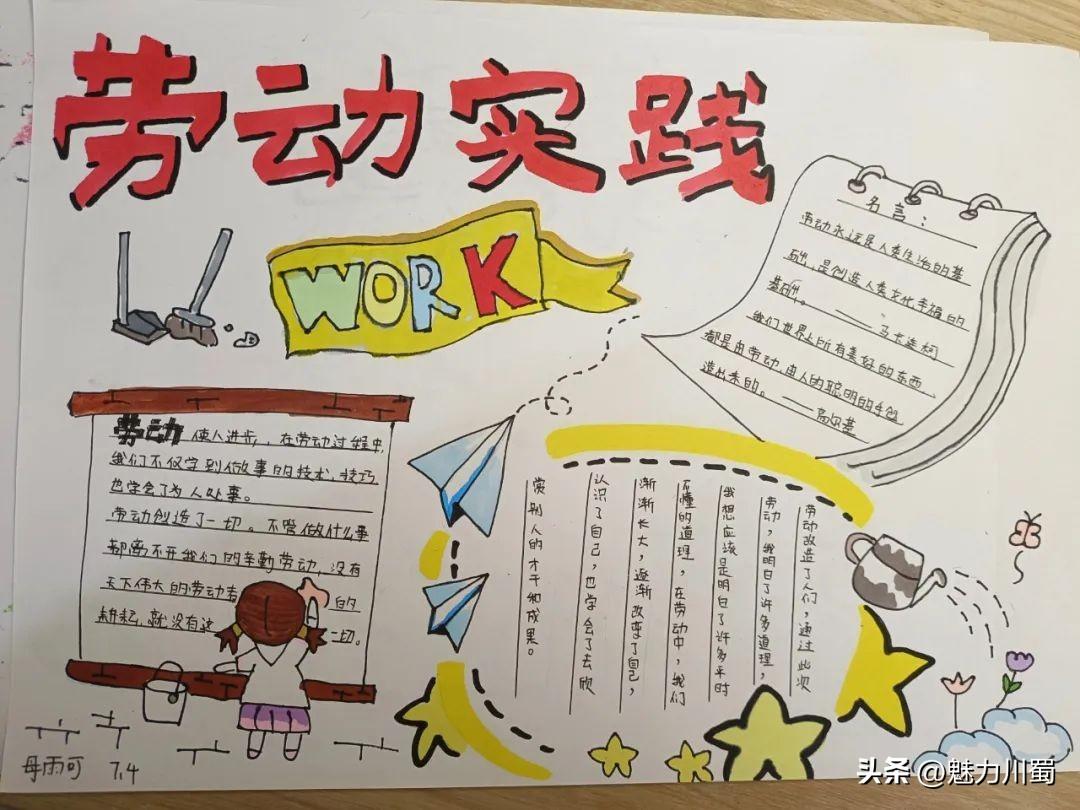 劳动实践
WORK
名言：
劳动永远是人类生活的基
础，是创造人类文化幸福的
基础。
——马卡连柯
我们世界上所有美好的东西，
都是由劳动、由人的聪明的手创
造出来的。——高尔基
劳动使人进步，在劳动过程中，
我们不仅学到做事的技术、技巧
也学会了为人处事。
劳动创造了一切。不管做什么事
都离不开我们的辛勤劳动，没有
天下伟大的劳动者的
耕耘，就没有这一切。
劳动改造了人们，通过此次
劳动，我明白了许多道理，
我想应该是明白了许多平时
不懂的道理，在劳动中，我们
渐渐长大，逐渐改变了自己，
认识了自己，也学会了去欣
赏别人的才干和成果。
母雨可 7.4
头条 @魅力川蜀